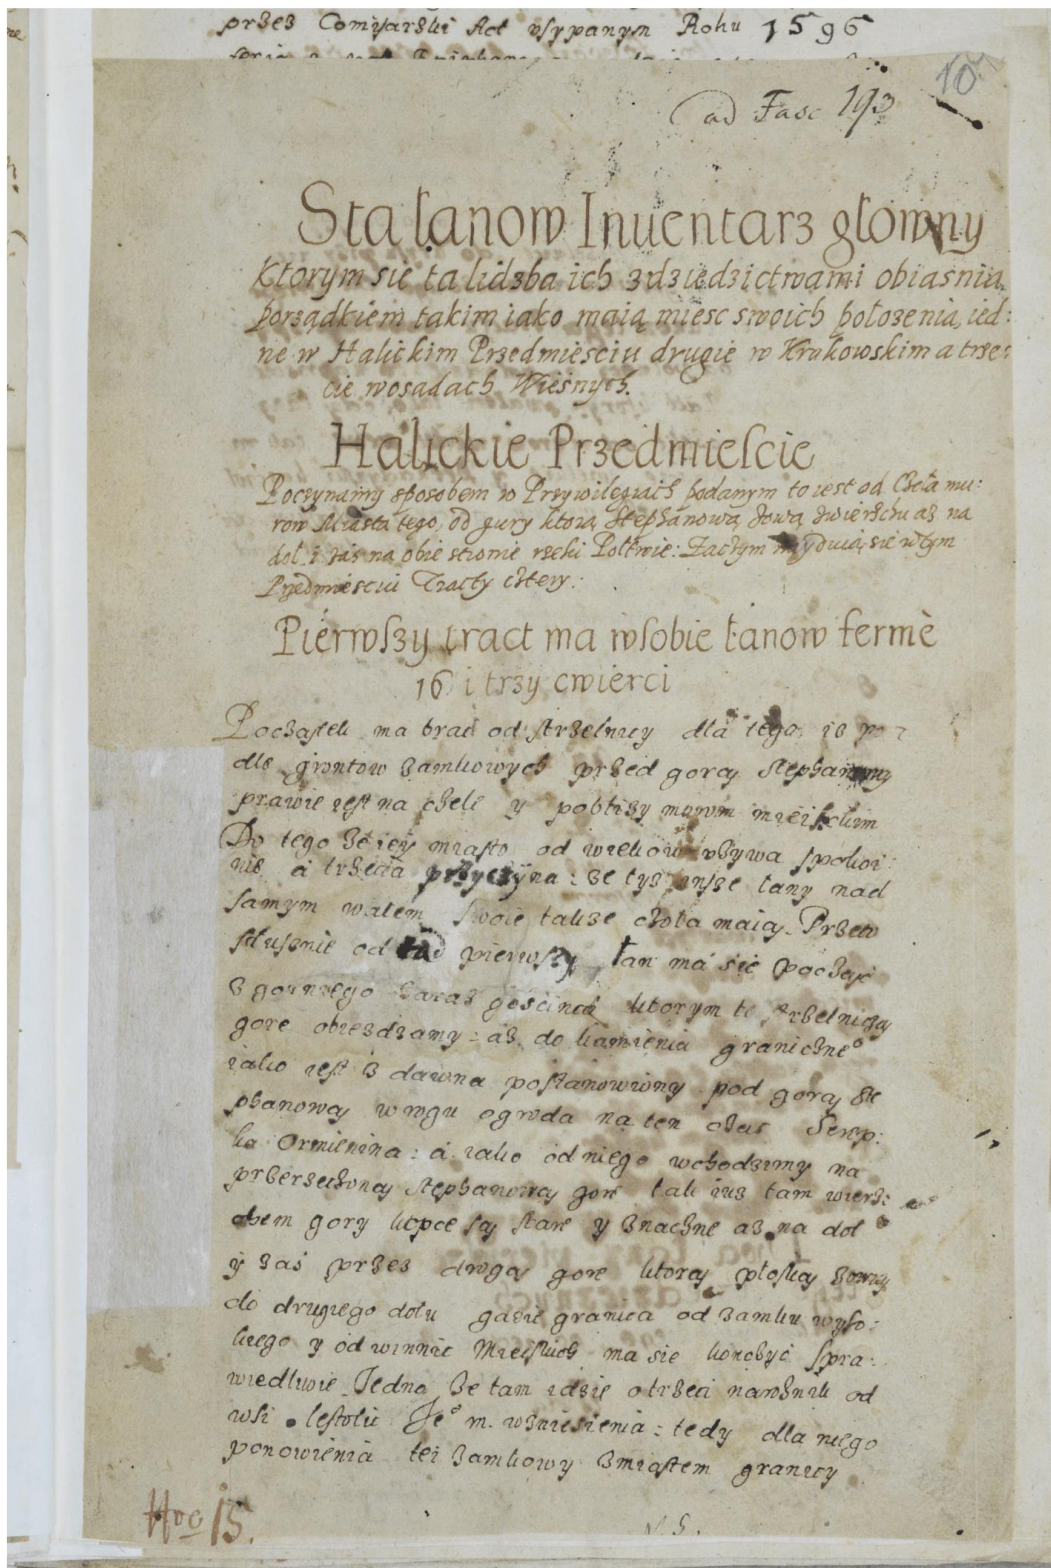 przez Comisarski Act usypanym Roku 1596
10
ad Fasc 193
Sta łanow Inuentarz głowny
ktorym sie ta liczba ich z dziedzictwami obiaśnia
porządkiem takim iako maią miesc swoich położenia, ied:
ne w Halickim Przedmieściu drugie w Krakowskim a trze:
cie w osadach Wieśnych.
Halickie Przedmieście
Poczynamy sposobem w Przywileiach podanym to iest od Czoła mu:
row Miasta tego, od gury ktorą Stephanową zową zwierzchu aż na
dol i zás na obie stronie rzeki Połtwie: Zaczym się w tym
Przedmiesciu Tracty cztery.
Pierwszy tract ma w sobie łanow fermè
16 i trzy cwierci
Początek ma brać od strzelnicy dla tego iż
dle gruntow zamkowych przed gorą Stephanową
prawie iest na czele y pobliży murom mieiskim
Do tego że iey miasto od wiekow używa spokoi:
nie a trzecia przyczyna: że tysz insze łany nad
samym wałem swoie także czoła maią. Przeto
słusznie od pierwszy łan má się począć
z gornego zaraz gościnca ktorym tę strzelniczą
gore obiezdzamy: aż do kamienia granicznego
iako iest z dawna postanowiony pod gorą Ste
phanową w rogu ogroda na ten czas Serp:
ka Ormienina: á iako od niego wchodzimy na
przerzeczoną Stephanową gore tak iuż tam wierz:
chem gory kopce są stare y znaczne aż na doł
y zaś przez drugą gore ktorą płoską zową
do drugiego dołu gdzie granica od zamku wyso:
kiego y od winnic Mieiskich ma się konczyć spra:
wiedliwie. Jedno że tam idzie o trzeci narożnik od
wsi Jeº m. wzniesienia: tedy dla niego
ponowienia też zamkowy z miastem granicy
Hoc 15.